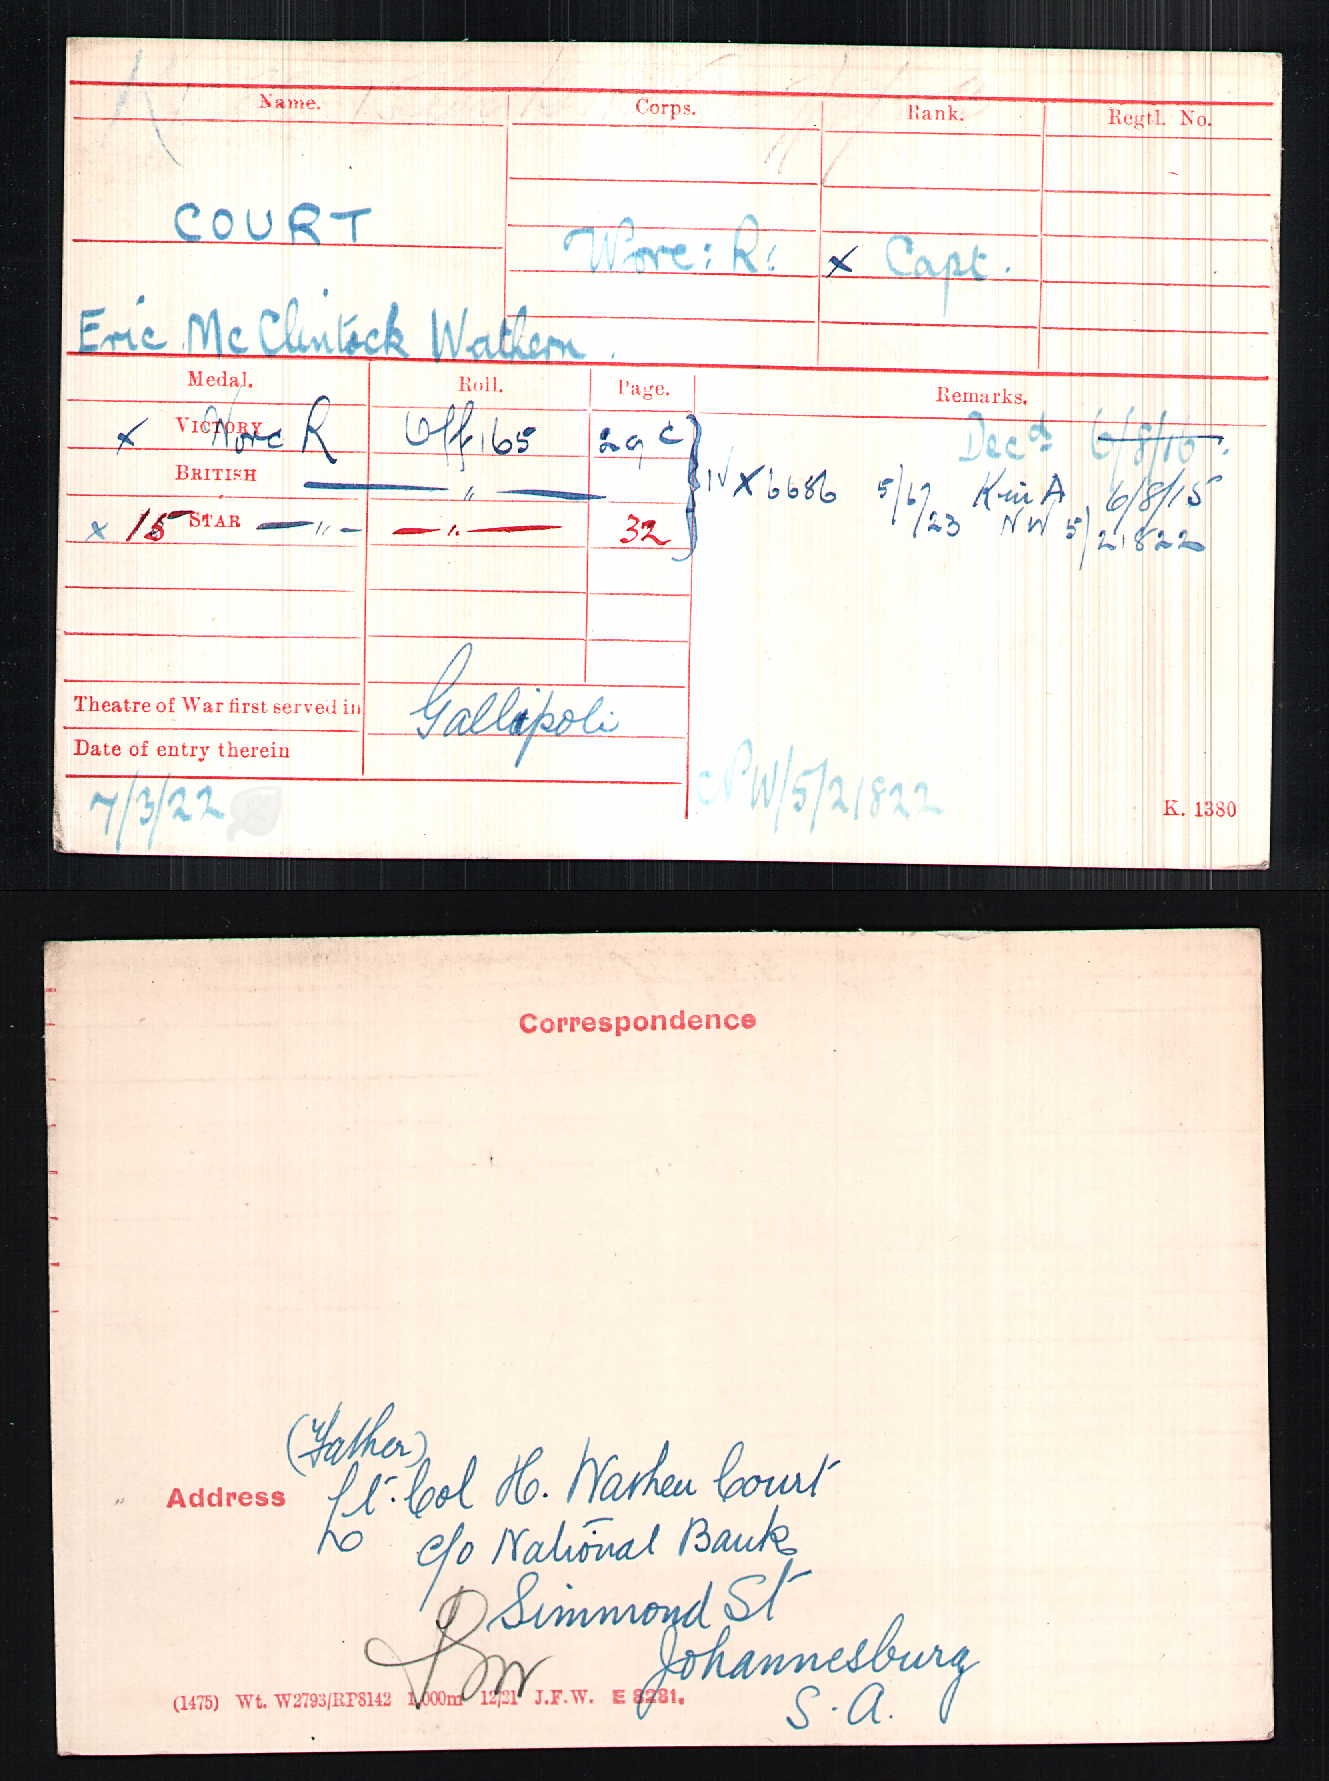 Name. Corps. Rank. Regtl. No.
COURT
Worc: R: x Capt.
Eric McClintock Wathen.
Medal. Roll. Page. Remarks.
Decd 6/8/16.
x VICTORY Worc R Off 165 29 c
BRITISH — " — IV X 6686 5/67 K in A 6/8/15
x 15 STAR — " — — " — 32 /23 NW 5/21822
Theatre of War first served in Gallipoli
Date of entry therein
7/3/22 NW/5/21822 K. 1380
Correspondence
(Father)
Address Lt. Col H. Wathen Court
c/o National Bank
Simmond St
Johannesburg
S.A.
(1475) Wt. W2793/RP8142 1,000m 12/21 J.F.W. E 8281.